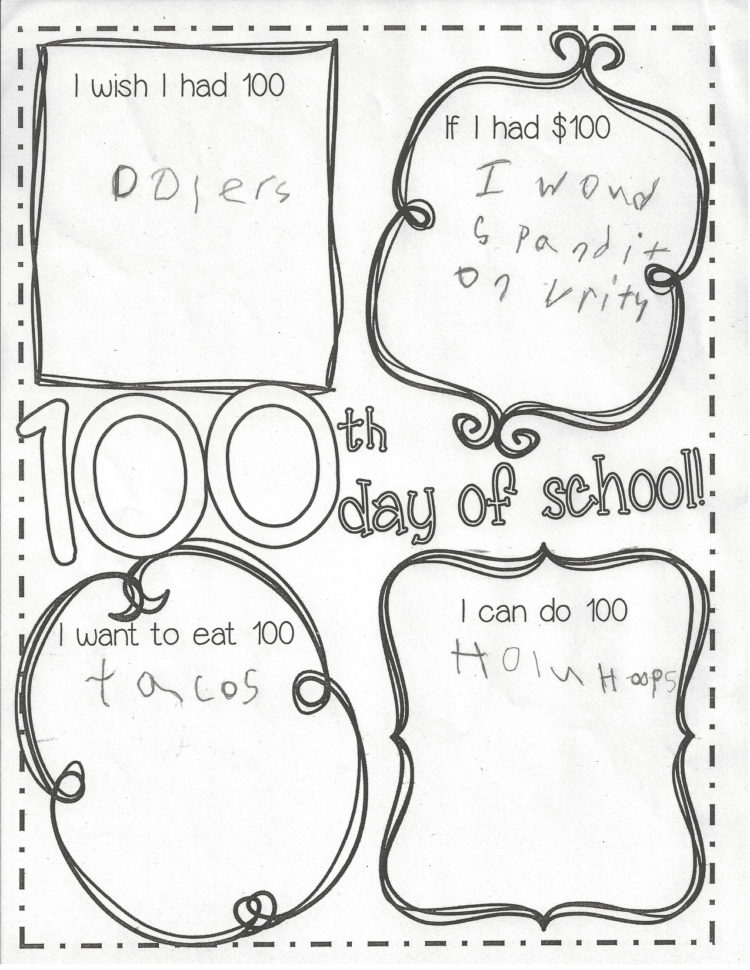 I wish I had 100
DDlers
If I had $100
I woud
spandit
on Vrity
100th
day of school!
I want to eat 100
tacos
I can do 100
Holu Hoops